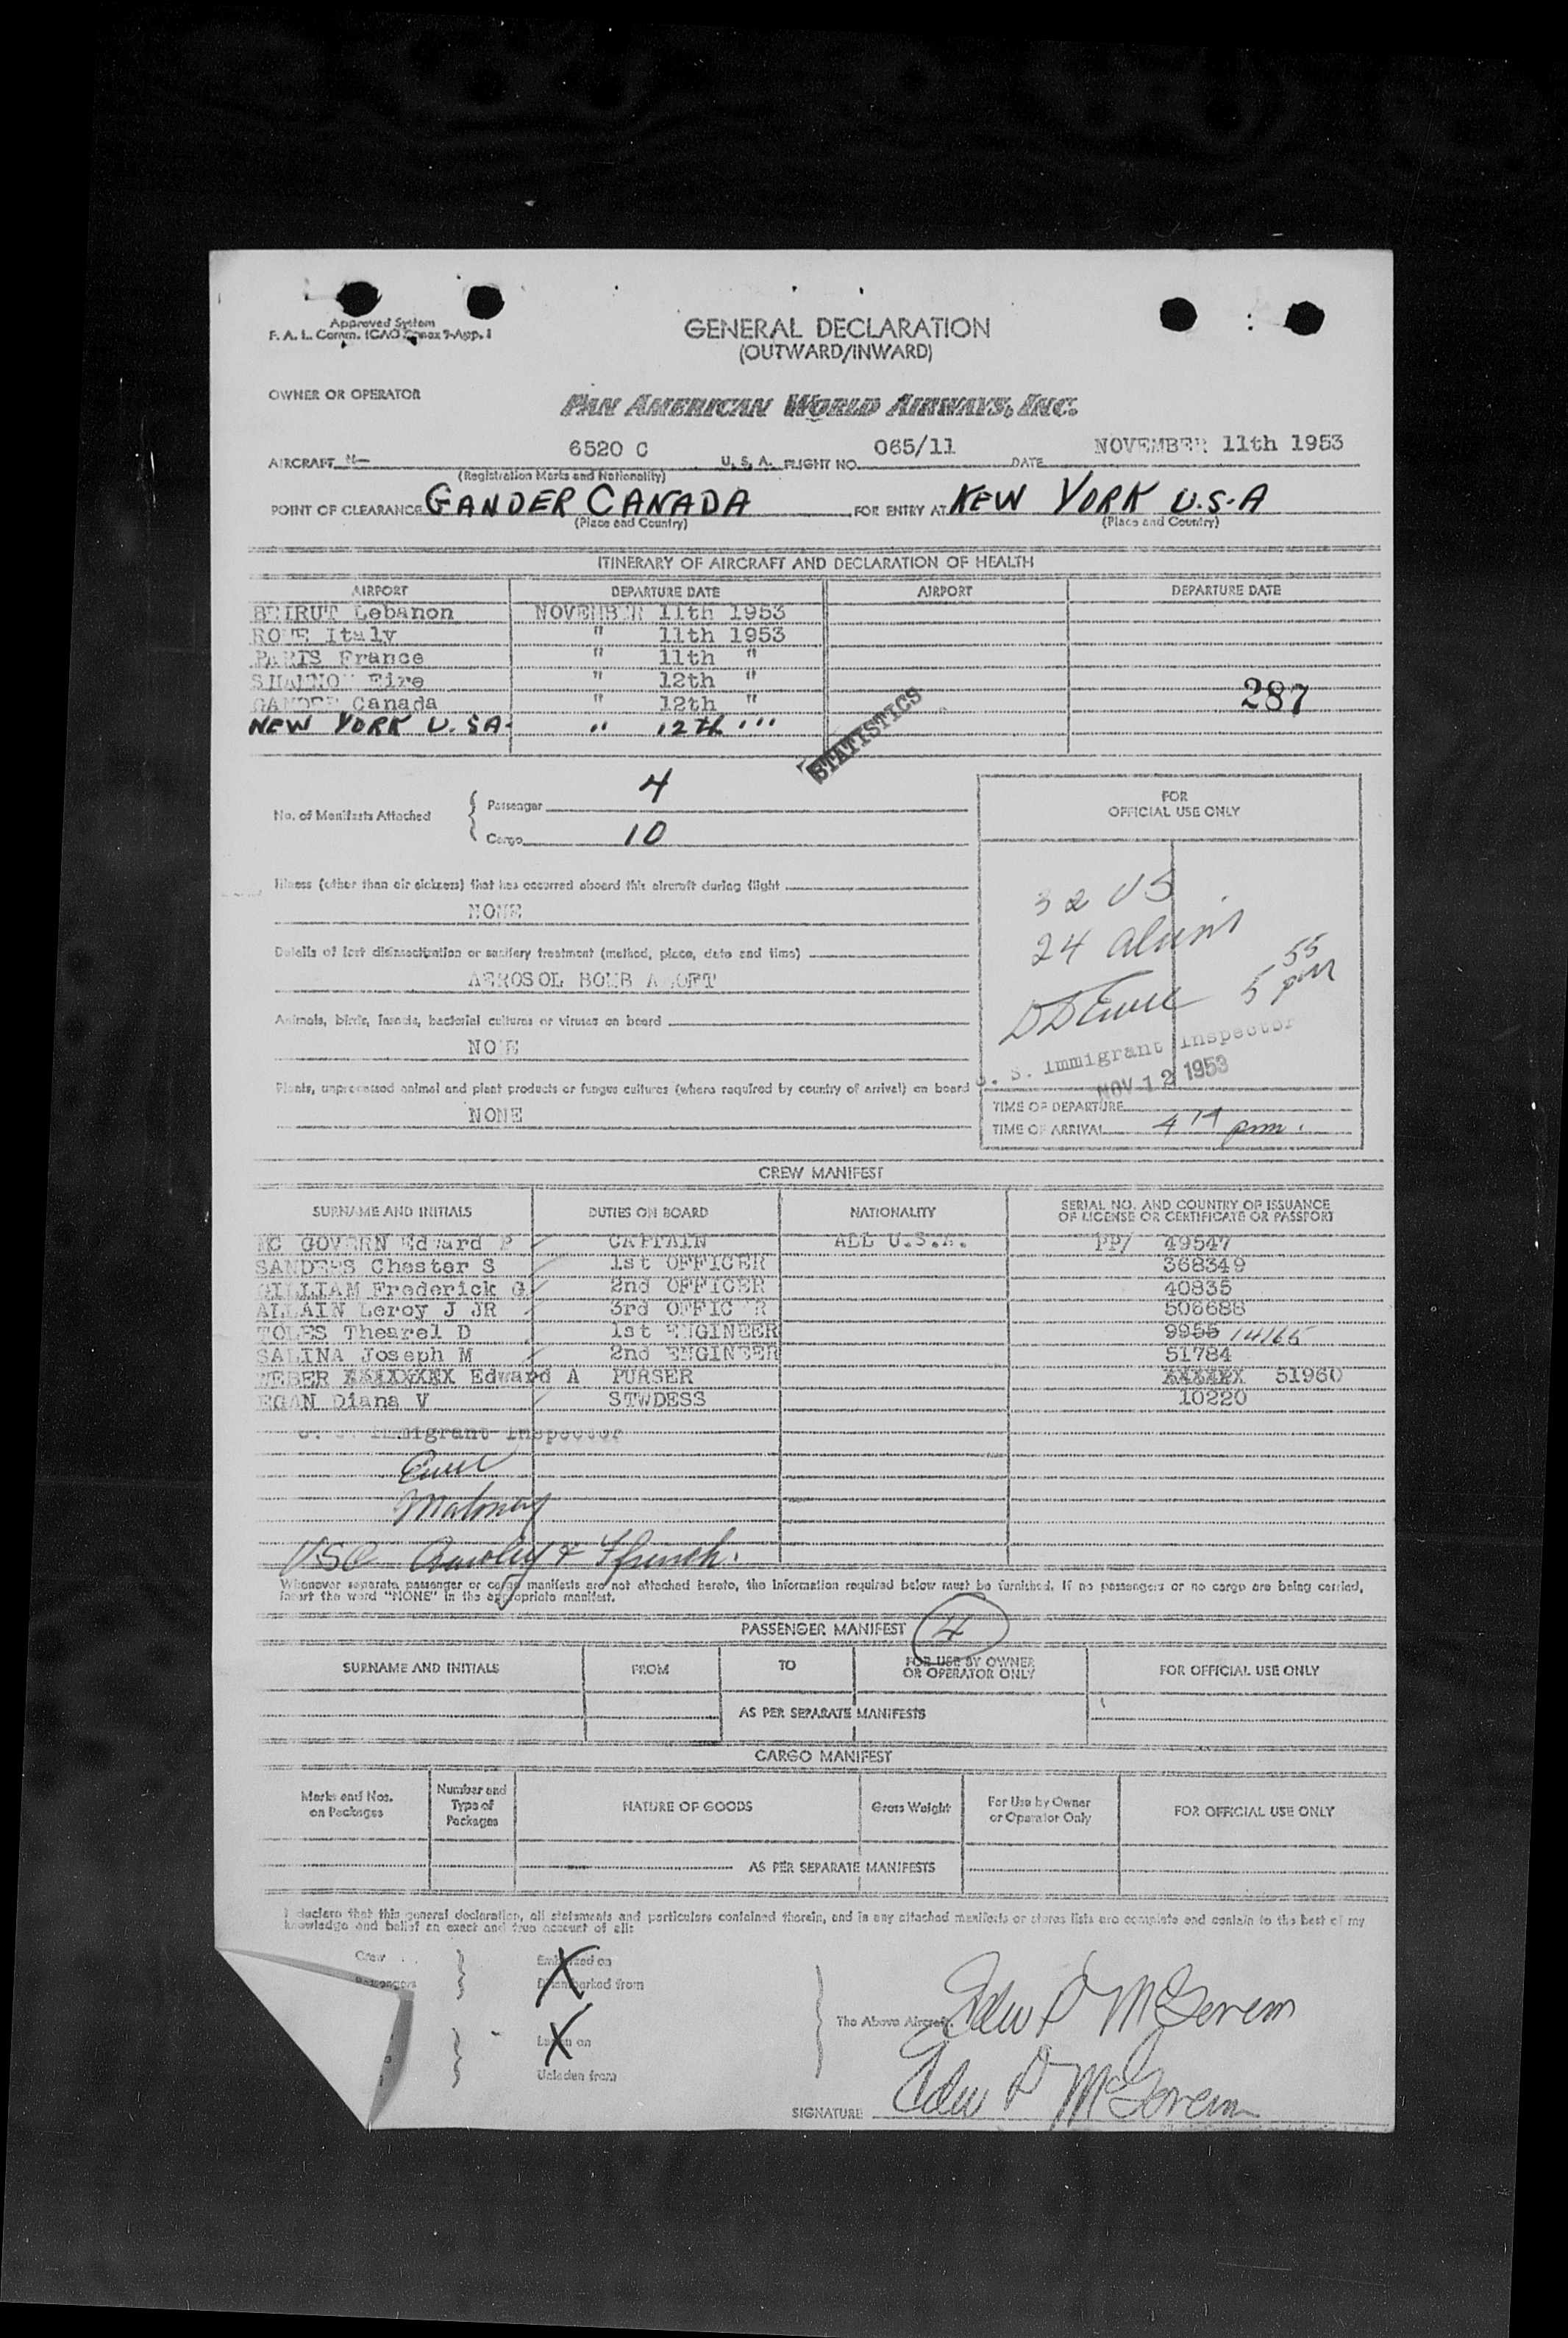 Approved System
F. A. L. Comm. ICAO Annex 9-App. 1
GENERAL DECLARATION
(OUTWARD/INWARD)
OWNER OR OPERATOR
PAN AMERICAN WORLD AIRWAYS, INC.
AIRCRAFT N- 6520 C U. S. A. FLIGHT NO. 065/11 DATE NOVEMBER 11th 1953
(Registration Marks and Nationality)
POINT OF CLEARANCE GANDER CANADA FOR ENTRY AT NEW YORK U.S.A
(Place and Country) (Place and Country)
ITINERARY OF AIRCRAFT AND DECLARATION OF HEALTH
AIRPORT DEPARTURE DATE AIRPORT DEPARTURE DATE
BEIRUT Lebanon NOVEMBER 11th 1953
ROME Italy " 11th 1953
PARIS France " 11th "
SHANNON Eire " 12th "
287
GANDER Canada " 12th "
NEW YORK U.SA. " 12th "'
STATISTICS
No. of Manifests Attached
Passenger 4
Cargo 10
FOR
OFFICIAL USE ONLY
Illness (other than air sickness) that has occurred aboard this aircraft during flight
NONE
32 US
24 aliens
Details of last disinsectization or sanitary treatment (method, place, date and time)
AEROSOL BOMB ALOFT
5 55 pm
Animals, birds, insects, bacterial cultures or viruses on board
NONE
U. S. Immigrant Inspector
NOV 12 1953
Plants, unprocessed animal and plant products or fungus cultures (where required by country of arrival) on board
NONE
TIME OF DEPARTURE
TIME OF ARRIVAL 4 19 pm.
CREW MANIFEST
SURNAME AND INITIALS DUTIES ON BOARD NATIONALITY SERIAL NO. AND COUNTRY OF ISSUANCE
OF LICENSE OR CERTIFICATE OR PASSPORT
MC GOVERN Edward P CAPTAIN ALL U.S.A. PP/ 49547
SANDERS Chester S 1st OFFICER 368349
GILLIAM Frederick G 2nd OFFICER 40835
ALLAIN Leroy J JR 3rd OFFICER 506688
TOLES Thearel D 1st ENGINEER 9955 14165
SALINA Joseph M 2nd ENGINEER 51784
WEBER XXXXXXX Edward A PURSER XXXXXX 51960
EGAN Diana V STWDESS 10220
U. S. Immigrant Inspector
Maloney
Whenever separate passenger or cargo manifests are not attached hereto, the information required below must be furnished. If no passengers or no cargo are being carried,
insert the word "NONE" in the appropriate manifest.
PASSENGER MANIFEST 4
SURNAME AND INITIALS FROM TO FOR USE BY OWNER
OR OPERATOR ONLY FOR OFFICIAL USE ONLY
AS PER SEPARATE MANIFESTS
CARGO MANIFEST
Marks and Nos.
on Packages Number and
Type of
Packages NATURE OF GOODS Gross Weight For Use by Owner
or Operator Only FOR OFFICIAL USE ONLY
AS PER SEPARATE MANIFESTS
I declare that this general declaration, all statements and particulars contained therein, and in any attached manifests or stores lists are complete and contain to the best of my
knowledge and belief an exact and true account of all:
Crew
Passengers
Embarked on
Disembarked from
X
Laden on
Unladen from
X
The Above Aircraft. Edw P McGovern
SIGNATURE Edw P McGovern